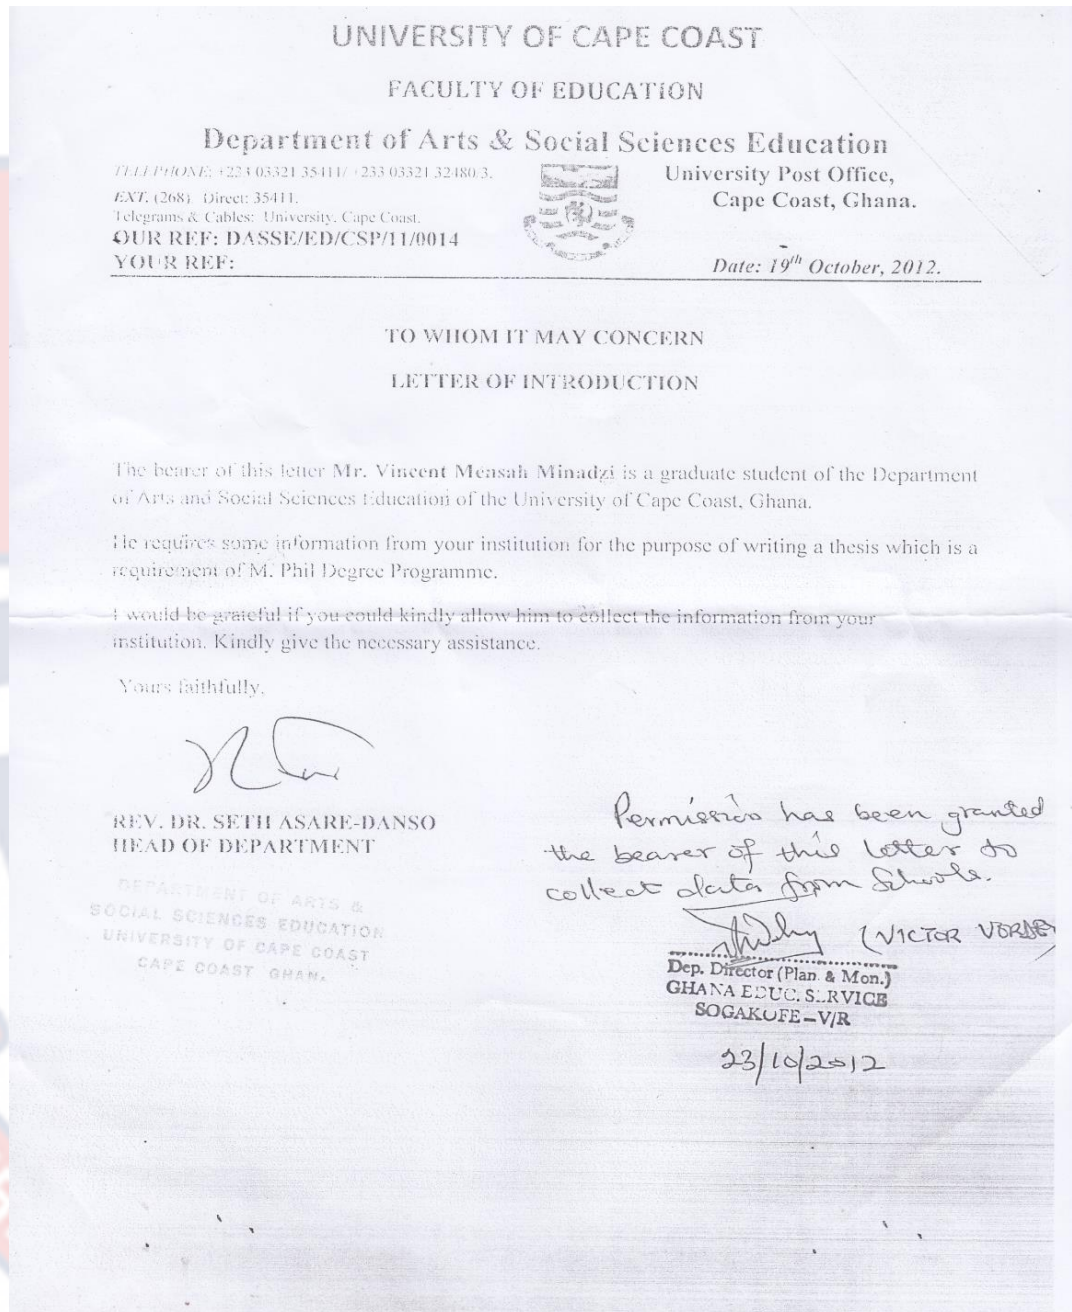 UNIVERSITY OF CAPE COAST
FACULTY OF EDUCATION
Department of Arts & Social Sciences Education
TELEPHONE: +233 03321 35411/ +233 03321 32480/3.
EXT. (268). Direct: 35411.
Telegrams & Cables: University, Cape Coast.
OUR REF: DASSE/ED/CSP/11/0014
YOUR REF:
University Post Office,
Cape Coast, Ghana.
Date: 19th October, 2012.
TO WHOM IT MAY CONCERN
LETTER OF INTRODUCTION
The bearer of this letter Mr. Vincent Mensah Minadzi is a graduate student of the Department
of Arts and Social Sciences Education of the University of Cape Coast, Ghana.
He requires some information from your institution for the purpose of writing a thesis which is a
requirement of M. Phil Degree Programme.
I would be grateful if you could kindly allow him to collect the information from your
institution. Kindly give the necessary assistance.
Yours faithfully,
REV. DR. SETH ASARE-DANSO
HEAD OF DEPARTMENT
DEPARTMENT OF ARTS &
SOCIAL SCIENCES EDUCATION
UNIVERSITY OF CAPE COAST
CAPE COAST GHANA
Permission has been granted
the bearer of this letter to
collect data from Schools.
(VICTOR
Dep. Director (Plan. & Mon.)
GHANA EDUC. SERVICE
SOGAKOFE-V/R
23/10/2012